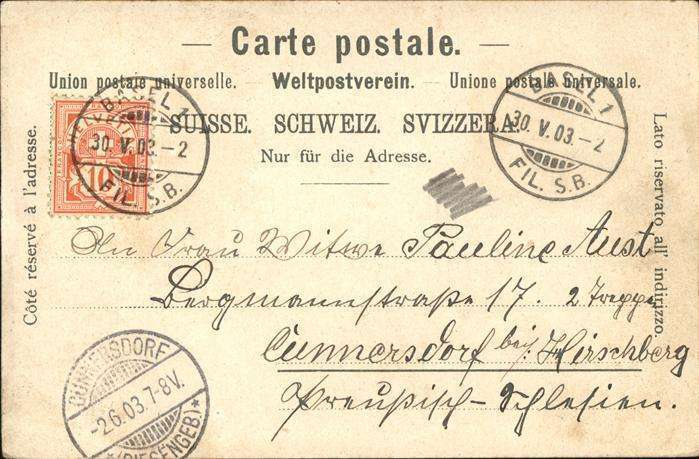 Carte postale.
Union postale universelle. — Weltpostverein. — Unione postale universale.
SUISSE. SCHWEIZ. SVIZZERA.
Nur für die Adresse.
Côté réservé à l'adresse.
Lato riservato all' indirizzo.
HELVETIA
10
BASEL 1
30. V. 03. – 2
FIL. S.B.
BASEL 1
30. V. 03. – 2
FIL. S.B.
An Frau Witwe Pauline Aust
Bergmannstraße 17. 2 Treppe
Cunnersdorf bei Hirschberg
Preußisch-Schlesien.
CUNNERSDORF
-2.6.03.7-8V.
*(RIESENGEB)*